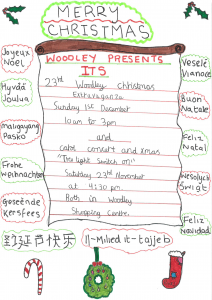 MERRY
CHRISTMAS
WOODLEY PRESENTS
ITS
23rd Woodley Christmas
Extravaganza
Sunday 1st December
10am to 3pm
and
Carol concert and xmas
"Tree Light Switch on"
Saturday 23rd November
at 4:30 pm
Both in Woodley
Shopping Centre.
Joyeux
Noel
Hyvää
Joulua
maligayang
Pasko
Frohe
Weihnachten
Geseënde
kersfees
Veselé
Vianoce
Buon
Natale
Feliz
Natal
Wesołych
Świąt
Feliz
Navidad
圣诞节快乐
Il-Milied it-tajjeb